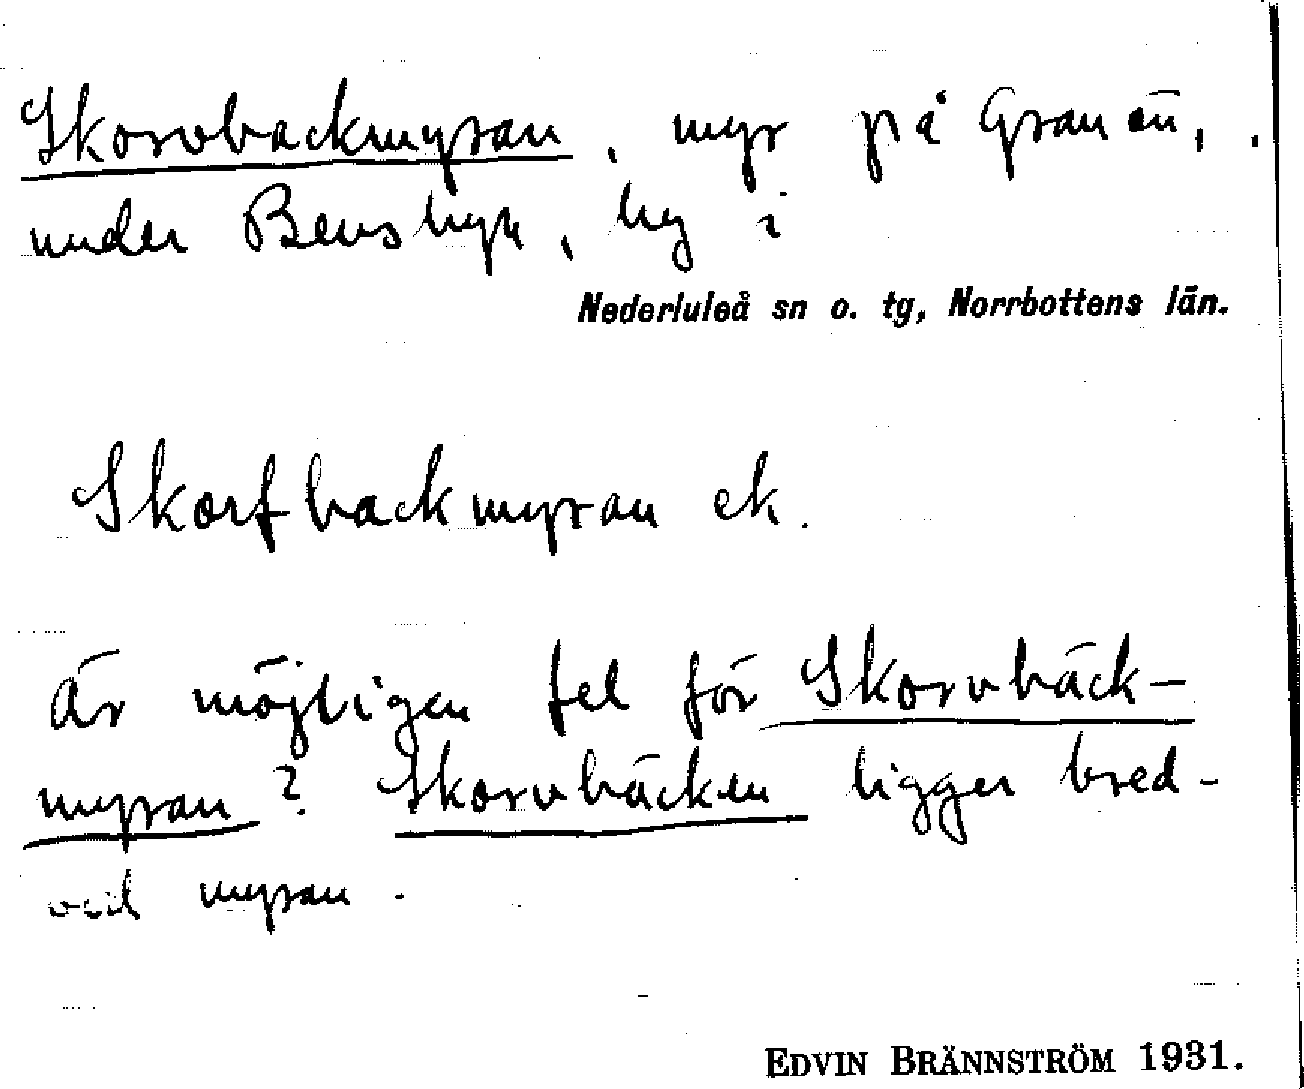 Skorvbackmyran, myr på Granön,
under Bensbyn, by i
Nederluleå sn o. tg, Norrbottens län.
Skorfbackmyran ek.
Är möjligen fel för Skorvbäck-
myran? Skorvbäcken ligger bred-
vid myran.
EDVIN BRÄNNSTRÖM 1931.